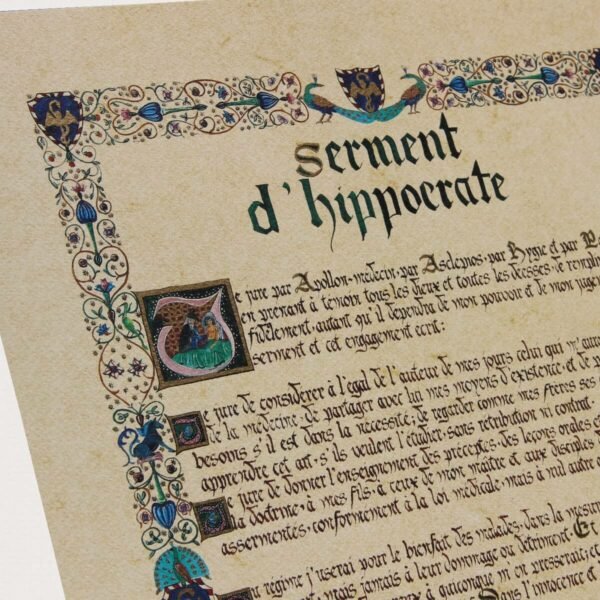 Serment
d'hippocrate
Je jure par Apollon-médecin, par Asclépios, par Hygie et par
en prenant à témoin tous les dieux et toutes les déesses, de remplir
fidèlement, autant qu'il dépendra de mon pouvoir et de mon
serment et cet engagement écrit:
Je jure de considérer à l'égal de l'auteur de mes jours celui qui
de la médecine, de partager avec lui mes moyens d'existence, et de
besoins s'il est dans la nécessité; de regarder comme mes frères ses
apprendre cet art, s'ils veulent l'étudier, sans rétribution ni contrat.
Je jure de donner l'enseignement des préceptes, des leçons orales et
la doctrine, à mes fils, à ceux de mon maître et aux disciples
assermentés, conformément à la loi médicale, mais à nul autre
régime j'userai pour le bienfait des malades, dans la
jamais à leur dommage ou détriment. Et
à quiconque m'en presserait, et
Dans l'innocence et